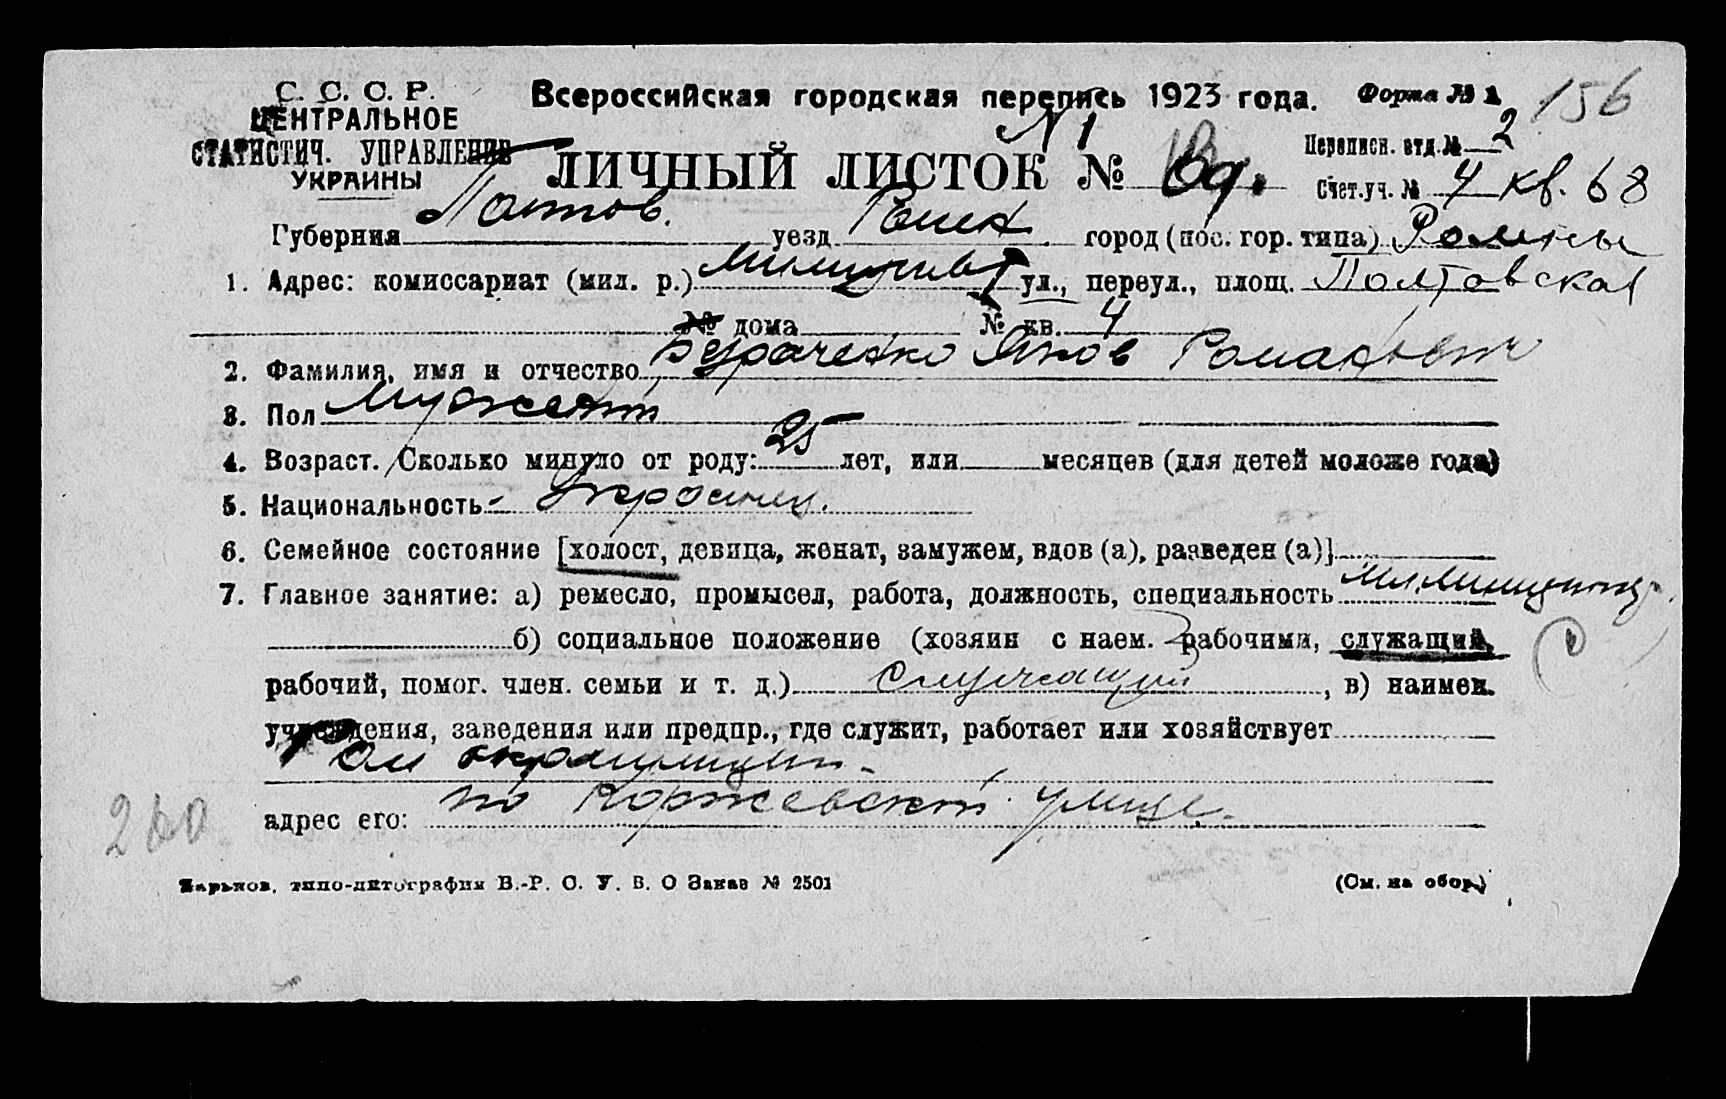 С. С. С. Р.
ЦЕНТРАЛЬНОЕ
СТАТИСТИЧ. УПРАВЛЕНИЕ
УКРАИНЫ
Всероссийская городская перепись 1923 года.
Форма № 1
156
N 1
ЛИЧНЫЙ ЛИСТОК №
Переписн. отд. № 2
Счет. уч. № 4 кв. 68
Губерния Полтов. уезд Роменк город (пос. гор. типа) Ромны
1. Адрес: комиссариат (мил. р.) ул., переул., площ. Полтовская
№ дома № кв. 4
2. Фамилия, имя и отчество Яков Романович
3. Пол Мужской
4. Возраст. Сколько минуло от роду: 25 лет, или месяцев (для детей моложе года)
5. Национальность - Украинец.
6. Семейное состояние [холост, девица, женат, замужем, вдов (а), разведен (а)]
7. Главное занятие: а) ремесло, промысел, работа, должность, специальность
б) социальное положение (хозяин с наем. рабочими, служащий,
рабочий, помог. член. семьи и т. д.) служащий, в) наимен.
учреждения, заведения или предпр., где служит, работает или хозяйствует
Ром окрмилиции
адрес его: по Коржевской улице.
260
Харьков, типо-литография В.-Р. С. У. В. О Заказ № 2501
(См. на обор.)